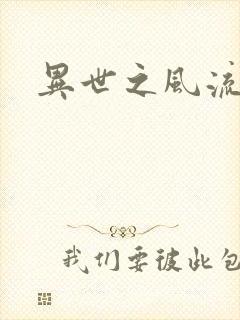 異世之風流
我们要彼此包